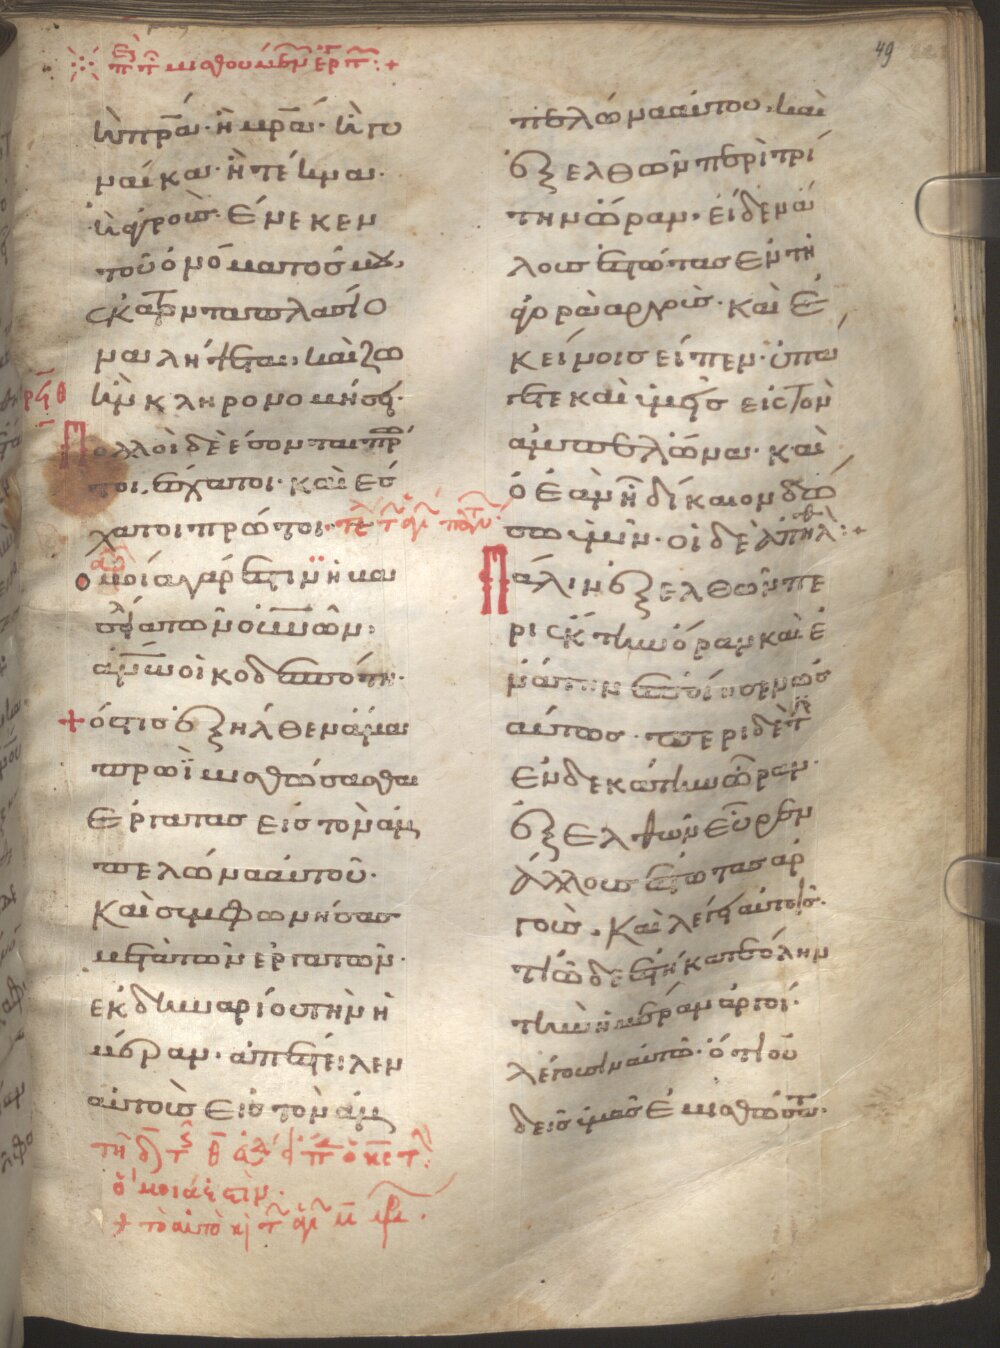 49
ἢ πρα ἢ μρα ἢ γυ
ναίκα ἢ τέκνα
ἢ ἀγροὺς ἕνεκεν
τοῦ ὀνόματός μου,
ἑκατονταπλασίο
να λήψεται, καὶ ζω
ὴν κληρονομήσει
Πολλοὶ δὲ ἔσονται πρῶ
τοι ἔσχατοι καὶ ἔσ
χατοι πρῶτοι
Ὁμοία γάρ ἐστιν ἡ βα
σιλεία τῶν οὐνῶν
ἀνῶ οἰκοδεσπότη
ὅστις ἐξῆλθεν ἅμα
πρωῒ μισθώσασθαι
ἐργάτας εἰς τὸν ἀμ
πελῶνα αὐτοῦ
Καὶ συμφωνήσας
μετὰ τῶν ἐργατῶν
ἐκ δηναρίου τὴν ἡ
μέραν ἀπέστειλεν
αὐτοὺς εἰς τὸν ἀμ
ὁμοία ἐστὶν
πελῶνα αὐτοῦ, καὶ
ἐξελθὼν περὶ τρί
την ὥραν, εἶδεν ἄλ
λους ἑστῶτας ἐν τῇ
ἀγορᾷ ἀργούς καὶ ἐ
κείνοις εἶπεν ὑπά
γετε καὶ ὑμεῖς εἰς τὸν
ἀμπελῶνα καὶ
ὃ ἐὰν ᾖ δίκαιον δώ
σω ὑμῖν οἱ δὲ ἀπῆλ
Πάλιν ἐξελθὼν πε
ρὶ ἕκτην ὥραν καὶ ἐ
νάτην ἐποίησεν ὡσ
αύτως περὶ δὲ τὴν
ἑνδεκάτην ὥραν
ἐξελθὼν εὗρεν
ἄλλους ἑστῶτας ἀρ
γοὺς Καὶ λέγει αὐτοῖς
τί ὧδε ἑστήκατε ὅλην
τὴν ἡμέραν ἀργοί
λέγουσιν αὐτῷ ὅτι οὐ
δεὶς ἡμᾶς ἐμισθώσατο